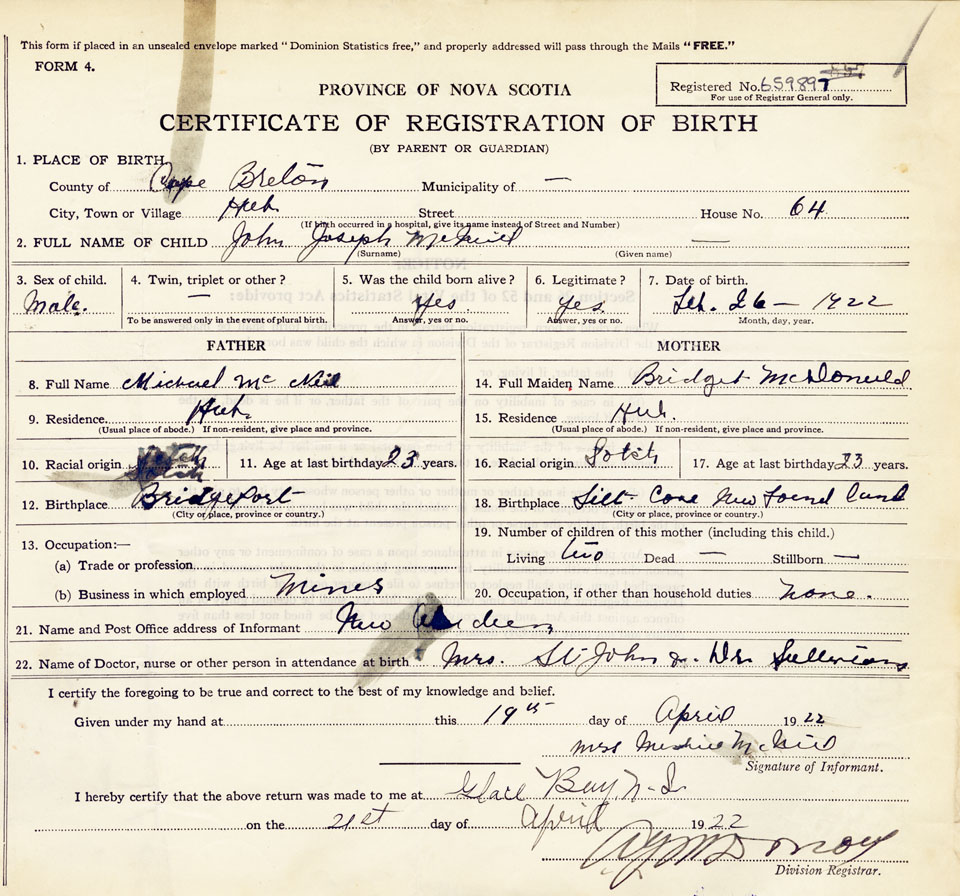 This form if placed in an unsealed envelope marked "Dominion Statistics free," and properly addressed will pass through the Mails "FREE."
FORM 4.
Registered No. 659897
For use of Registrar General only.
PROVINCE OF NOVA SCOTIA
CERTIFICATE OF REGISTRATION OF BIRTH
(BY PARENT OR GUARDIAN)
1. PLACE OF BIRTH.
County of Cape Breton Municipality of —
City, Town or Village Hub Street House No. 64
(If birth occurred in a hospital, give its name instead of Street and Number)
2. FULL NAME OF CHILD John Joseph McNeil —
(Surname) (Given name)
3. Sex of child. 4. Twin, triplet or other? 5. Was the child born alive? 6. Legitimate? 7. Date of birth.
Male. — Yes. Yes. Feb. 26 — 1922
To be answered only in the event of plural birth. Answer, yes or no. Answer, yes or no. Month, day, year.
FATHER MOTHER
8. Full Name Michael Mc Neil 14. Full Maiden Name Bridget McDonald
9. Residence. Hub. 15. Residence Hub.
(Usual place of abode.) If non-resident, give place and province. (Usual place of abode.) If non-resident, give place and province.
10. Racial origin Scotch 11. Age at last birthday 23 years. 16. Racial origin Sotch 17. Age at last birthday 23 years.
12. Birthplace Bridgeport 18. Birthplace Silt Cove New Found Land
(City or place, province or country.) (City or place, province or country.)
13. Occupation:— 19. Number of children of this mother (including this child.)
(a) Trade or profession Living two Dead — Stillborn —
(b) Business in which employed Mines 20. Occupation, if other than household duties None.
21. Name and Post Office address of Informant New Aberdeen
22. Name of Doctor, nurse or other person in attendance at birth Mrs. St John Dr. Sullivan
I certify the foregoing to be true and correct to the best of my knowledge and belief.
Given under my hand at this 19th day of April 1922
Mrs McNeil
Signature of Informant.
I hereby certify that the above return was made to me at Glace Bay N.S.
on the 21st day of April 1922
Division Registrar.